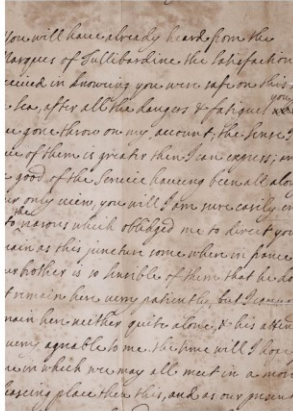 You will have already heard from the
Marques of Tullibardine the Satisfaction
ceived in knowing you were safe on this
e Sea, after all the dangers & fatigues you
e gone throw on my account; the sence I
ve of them is greater then I can express; an
good of the Service haveing been all alo
only view, you will I am sure easily
the reasons which obbliged me to direct you
ain as this juncture some when in france
brother is so sensible of them that he
t remain here very patiently, but I cannot
main here neither quite alone, & his atten
very agreable to me. the time will I hope
e in which we may all meet in a more
leaseing place then this, and as our